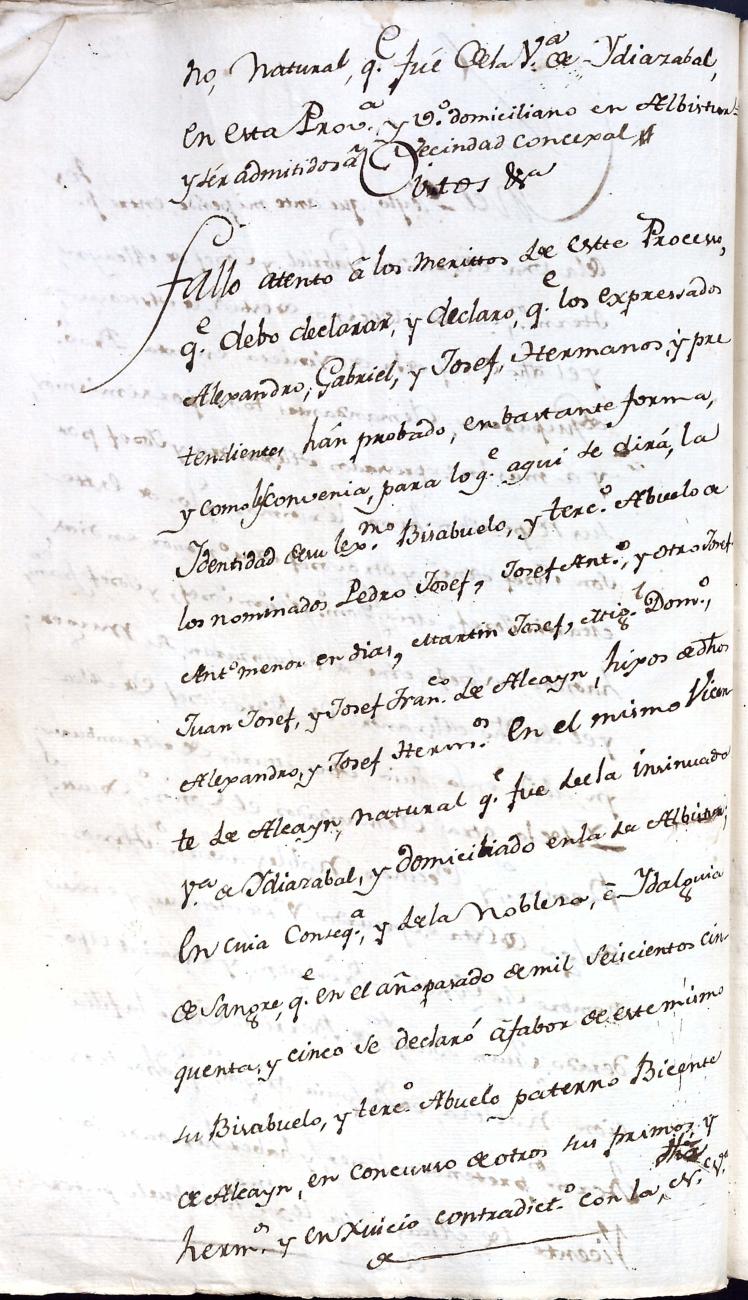 no, natural, q.e fué de la V.a de Ydiazabal,
en esta Prov.a y v.o domiciliano en Albistur
y ser admitidos a Vecindad concexal #
Vistos &a
Fallo atento â los merittos de estte Processo,
q.e debo declarar, y declaro, q.e los expressados
Alexandro, Gabriel, y Josef, Hermanos, y pre
tendientes han probado, en bastante forma,
y como les convenia, para lo q.e aqui se dirá, la
Identidad de su lex.mo Bisabuelo, y terc.o Abuelo de
los nominados Pedro Josef, Josef Ant.o, y otro Josef
Ant.o menor en dias, Martin Josef, Mig.l Dom.o,
Juan Josef, y Josef Fran.co de Alcayn, hixos de dhos
Alexandro, y Josef Herm.os En el mismo Vicen
te de Alcayn, natural q.e fue de la insinuada
V.a de Ydiazabal, y domiciliado en la de Albistur;
En cuia Conseq.a, y de la Nobleza, é Ydalguia
de Sangre, q.e en el año pasado de mil seiscientos cin
quenta, y cinco se declaró â fabor de este mismo
su Bisabuelo, y terc.o Abuelo paterno Bicente
de Alcayn, en concurso de otros sus primos, y
herm.os y en Xuicio contradict.o con la, N. e V.a
de
Vicente